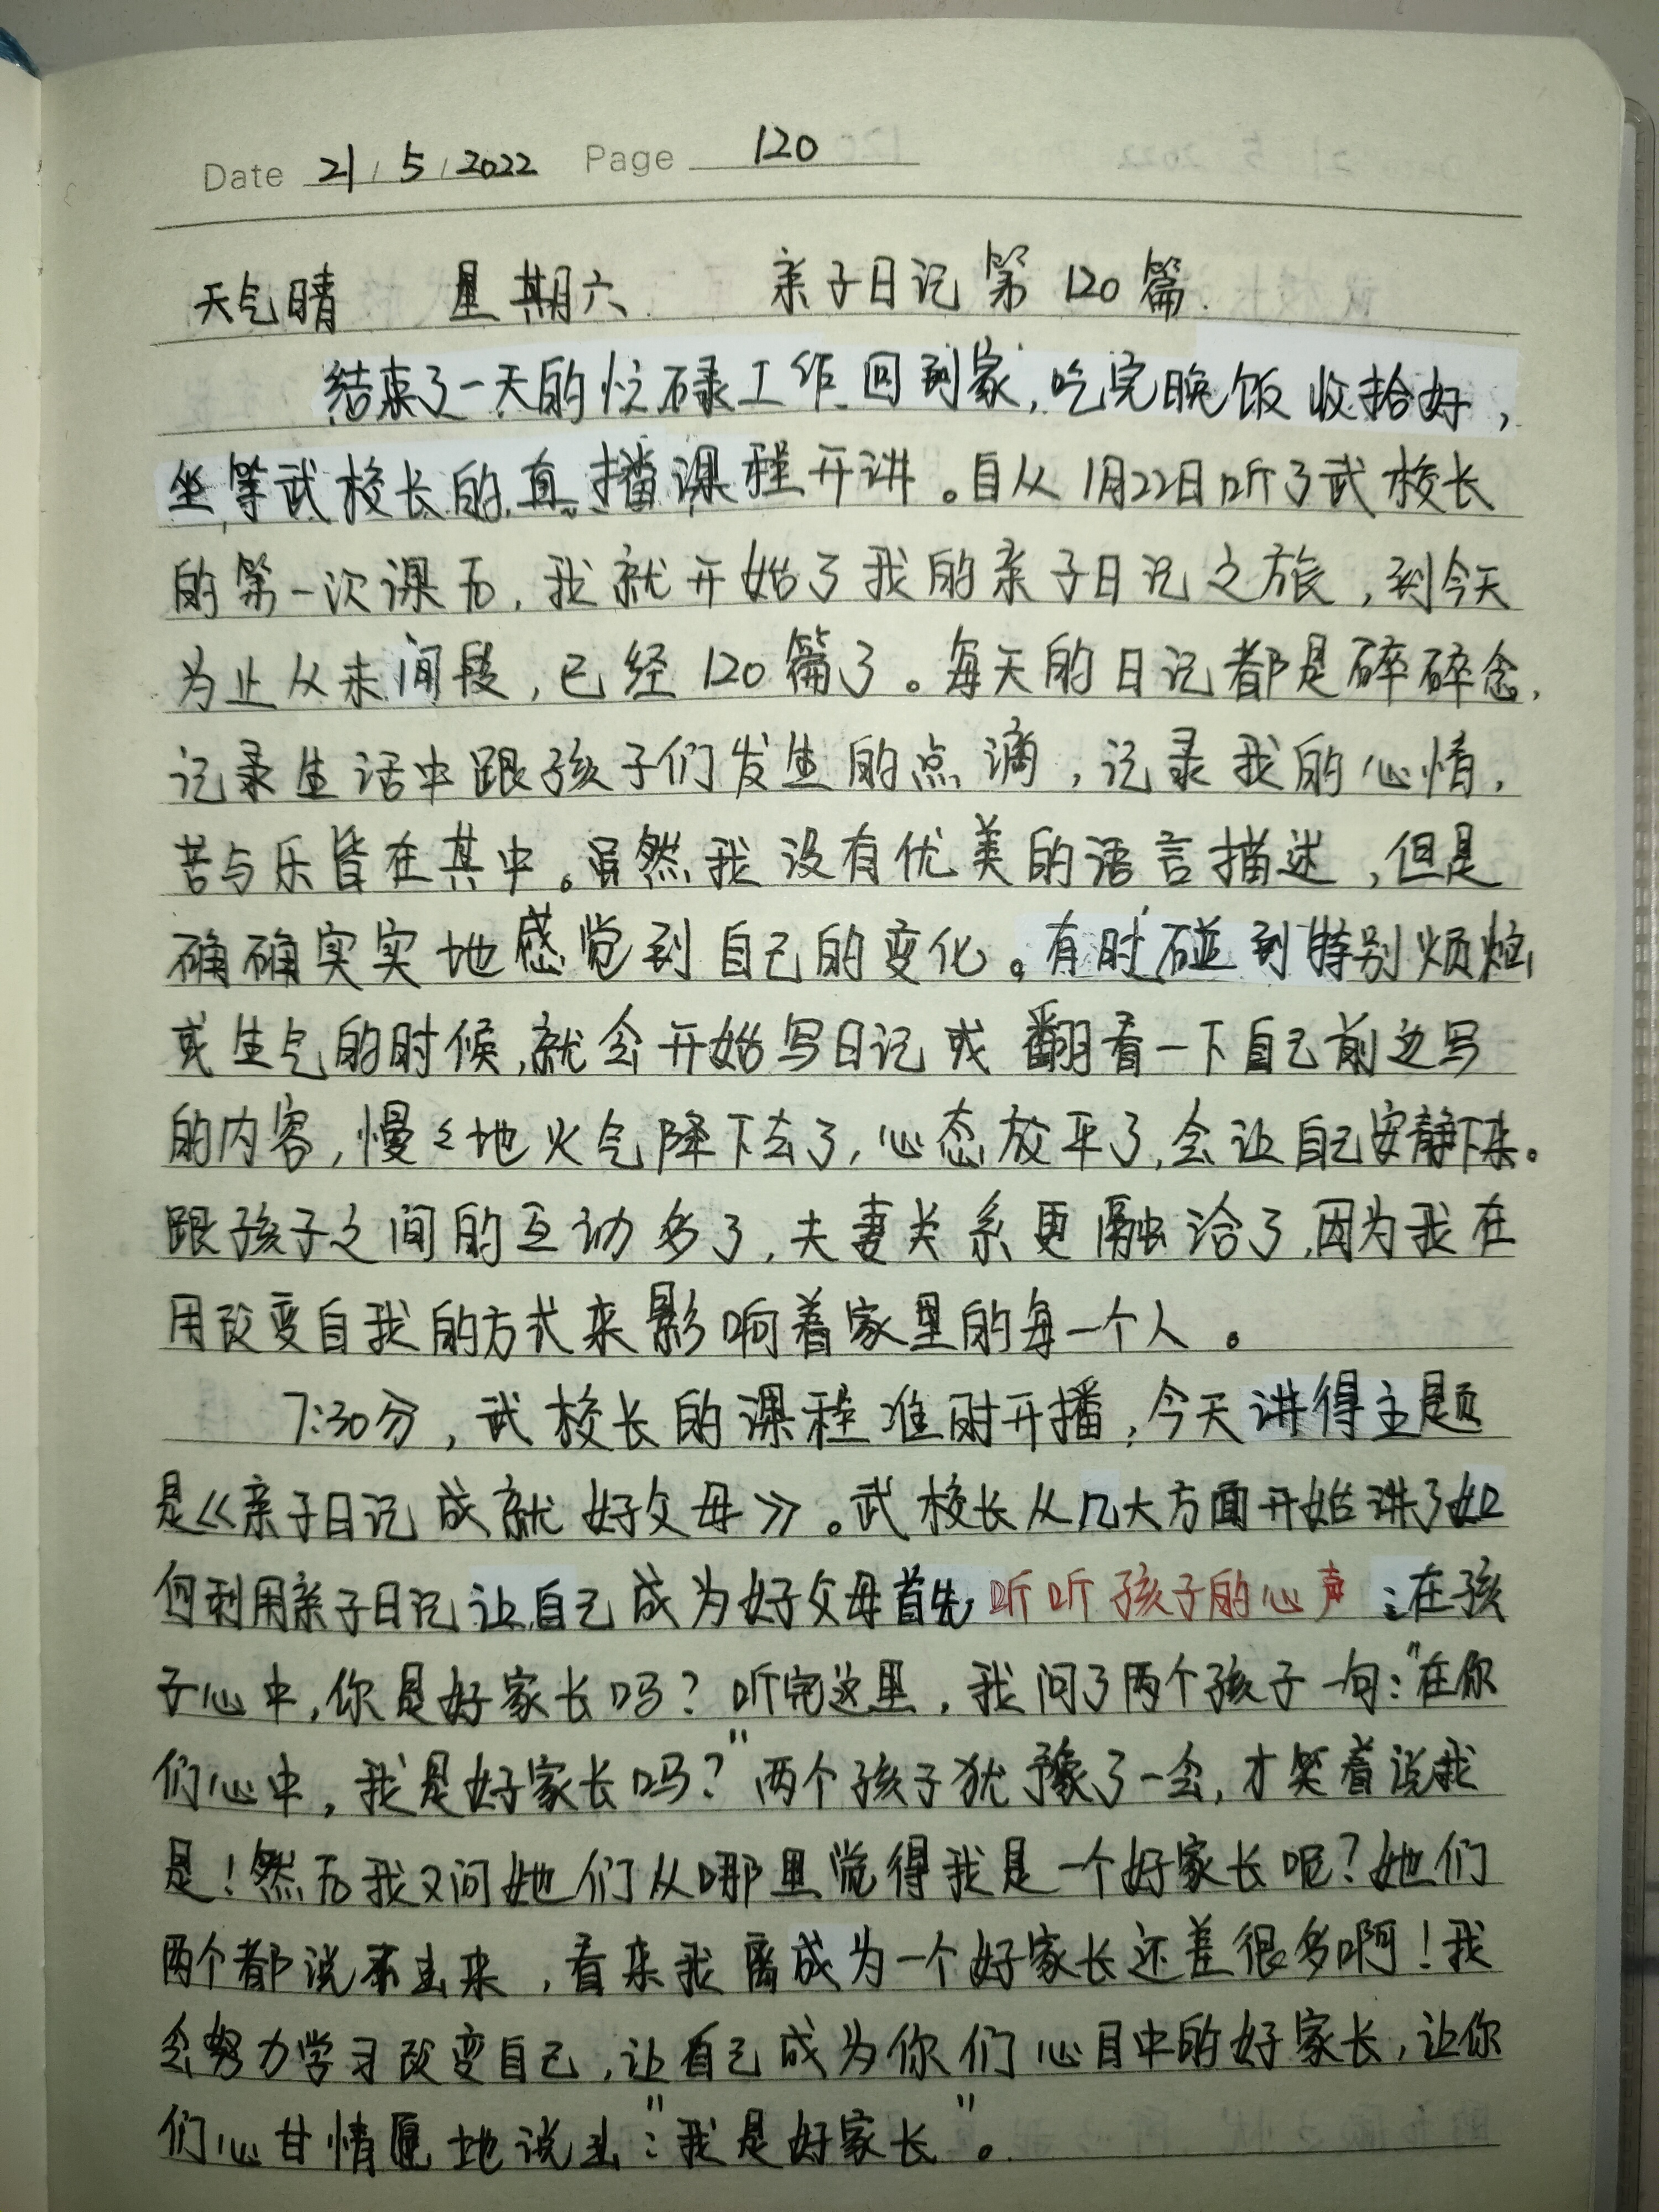 Date 21 / 5 / 2022 Page 120
天气晴 星期六. 亲子日记第120篇.
结束了一天的忙碌工作回到家,吃完晚饭收拾好,
坐等武校长的直播课程开讲。自从1月22日听了武校长
的第一次课后,我就开始了我的亲子日记之旅,到今天
为止从未间段,已经120篇了。每天的日记都是碎碎念,
记录生活中跟孩子们发生的点滴,记录我的心情,
苦与乐皆在其中。虽然我没有优美的语言描述,但是
确确实实地感觉到自己的变化。有时碰到特别烦恼
或生气的时候,就会开始写日记或翻看一下自己前边写
的内容,慢々地火气降下去了,心态放平了,会让自己安静下来。
跟孩子之间的互动多了,夫妻关系更融洽了,因为我在
用改变自我的方式来影响着家里的每一个人。
7:30分,武校长的课程准时开播,今天讲得主题
是《亲子日记成就好父母》。武校长从几大方面开始讲了如
何利用亲子日记让自己成为好父母首先听听孩子的心声:在孩
子心中,你是好家长吗?听完这里,我问了两个孩子一句:"在你
们心中,我是好家长吗?"两个孩子犹豫了一会,才笑着说我
是!然后我又问她们从哪里觉得我是一个好家长呢?她们
两个都说不出来,看来我离成为一个好家长还差很多啊!我
会努力学习改变自己,让自己成为你们心目中的好家长,让你
们心甘情愿地说出:"我是好家长"。